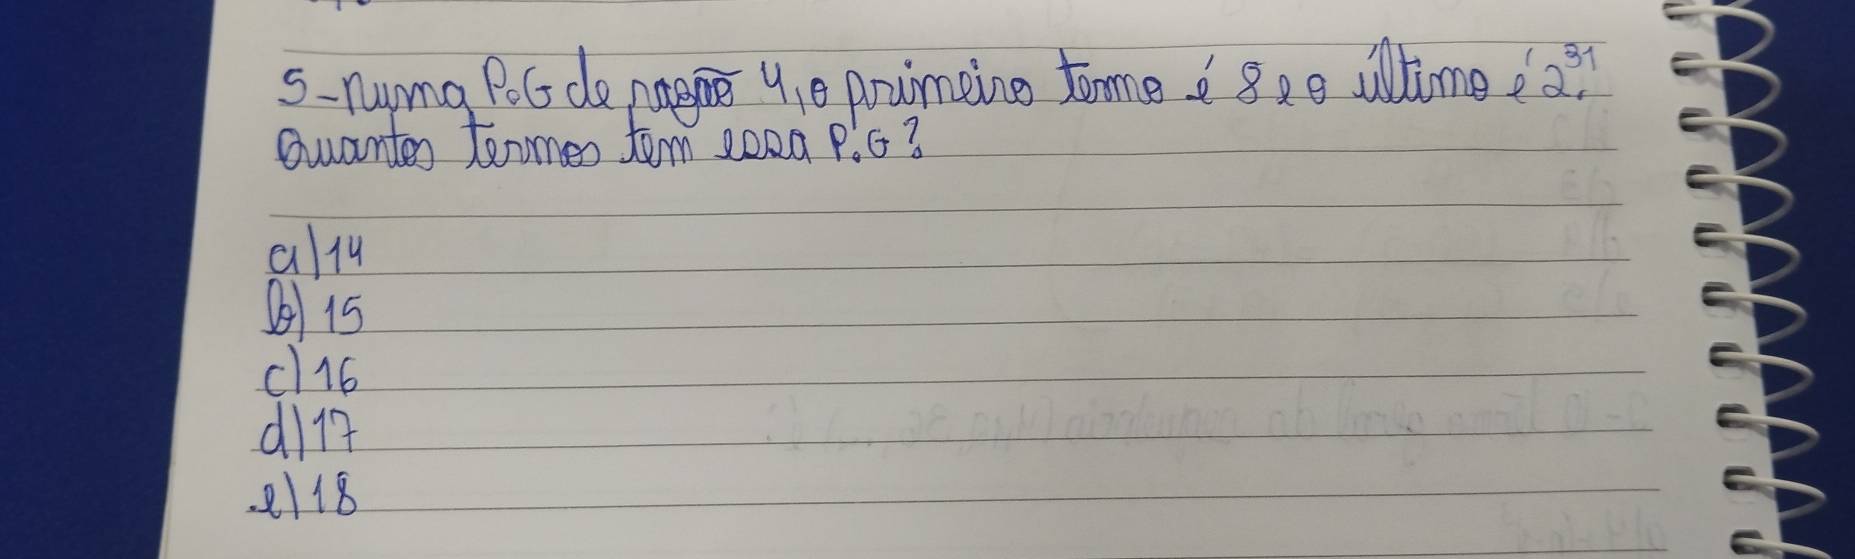 5-Numa P.G de razão 4, o primeiro termo é 8 e o último é 2³¹.
Quantos termos tem essa P.G?
a) 14
b) 15
c) 16
d) 17
e) 18